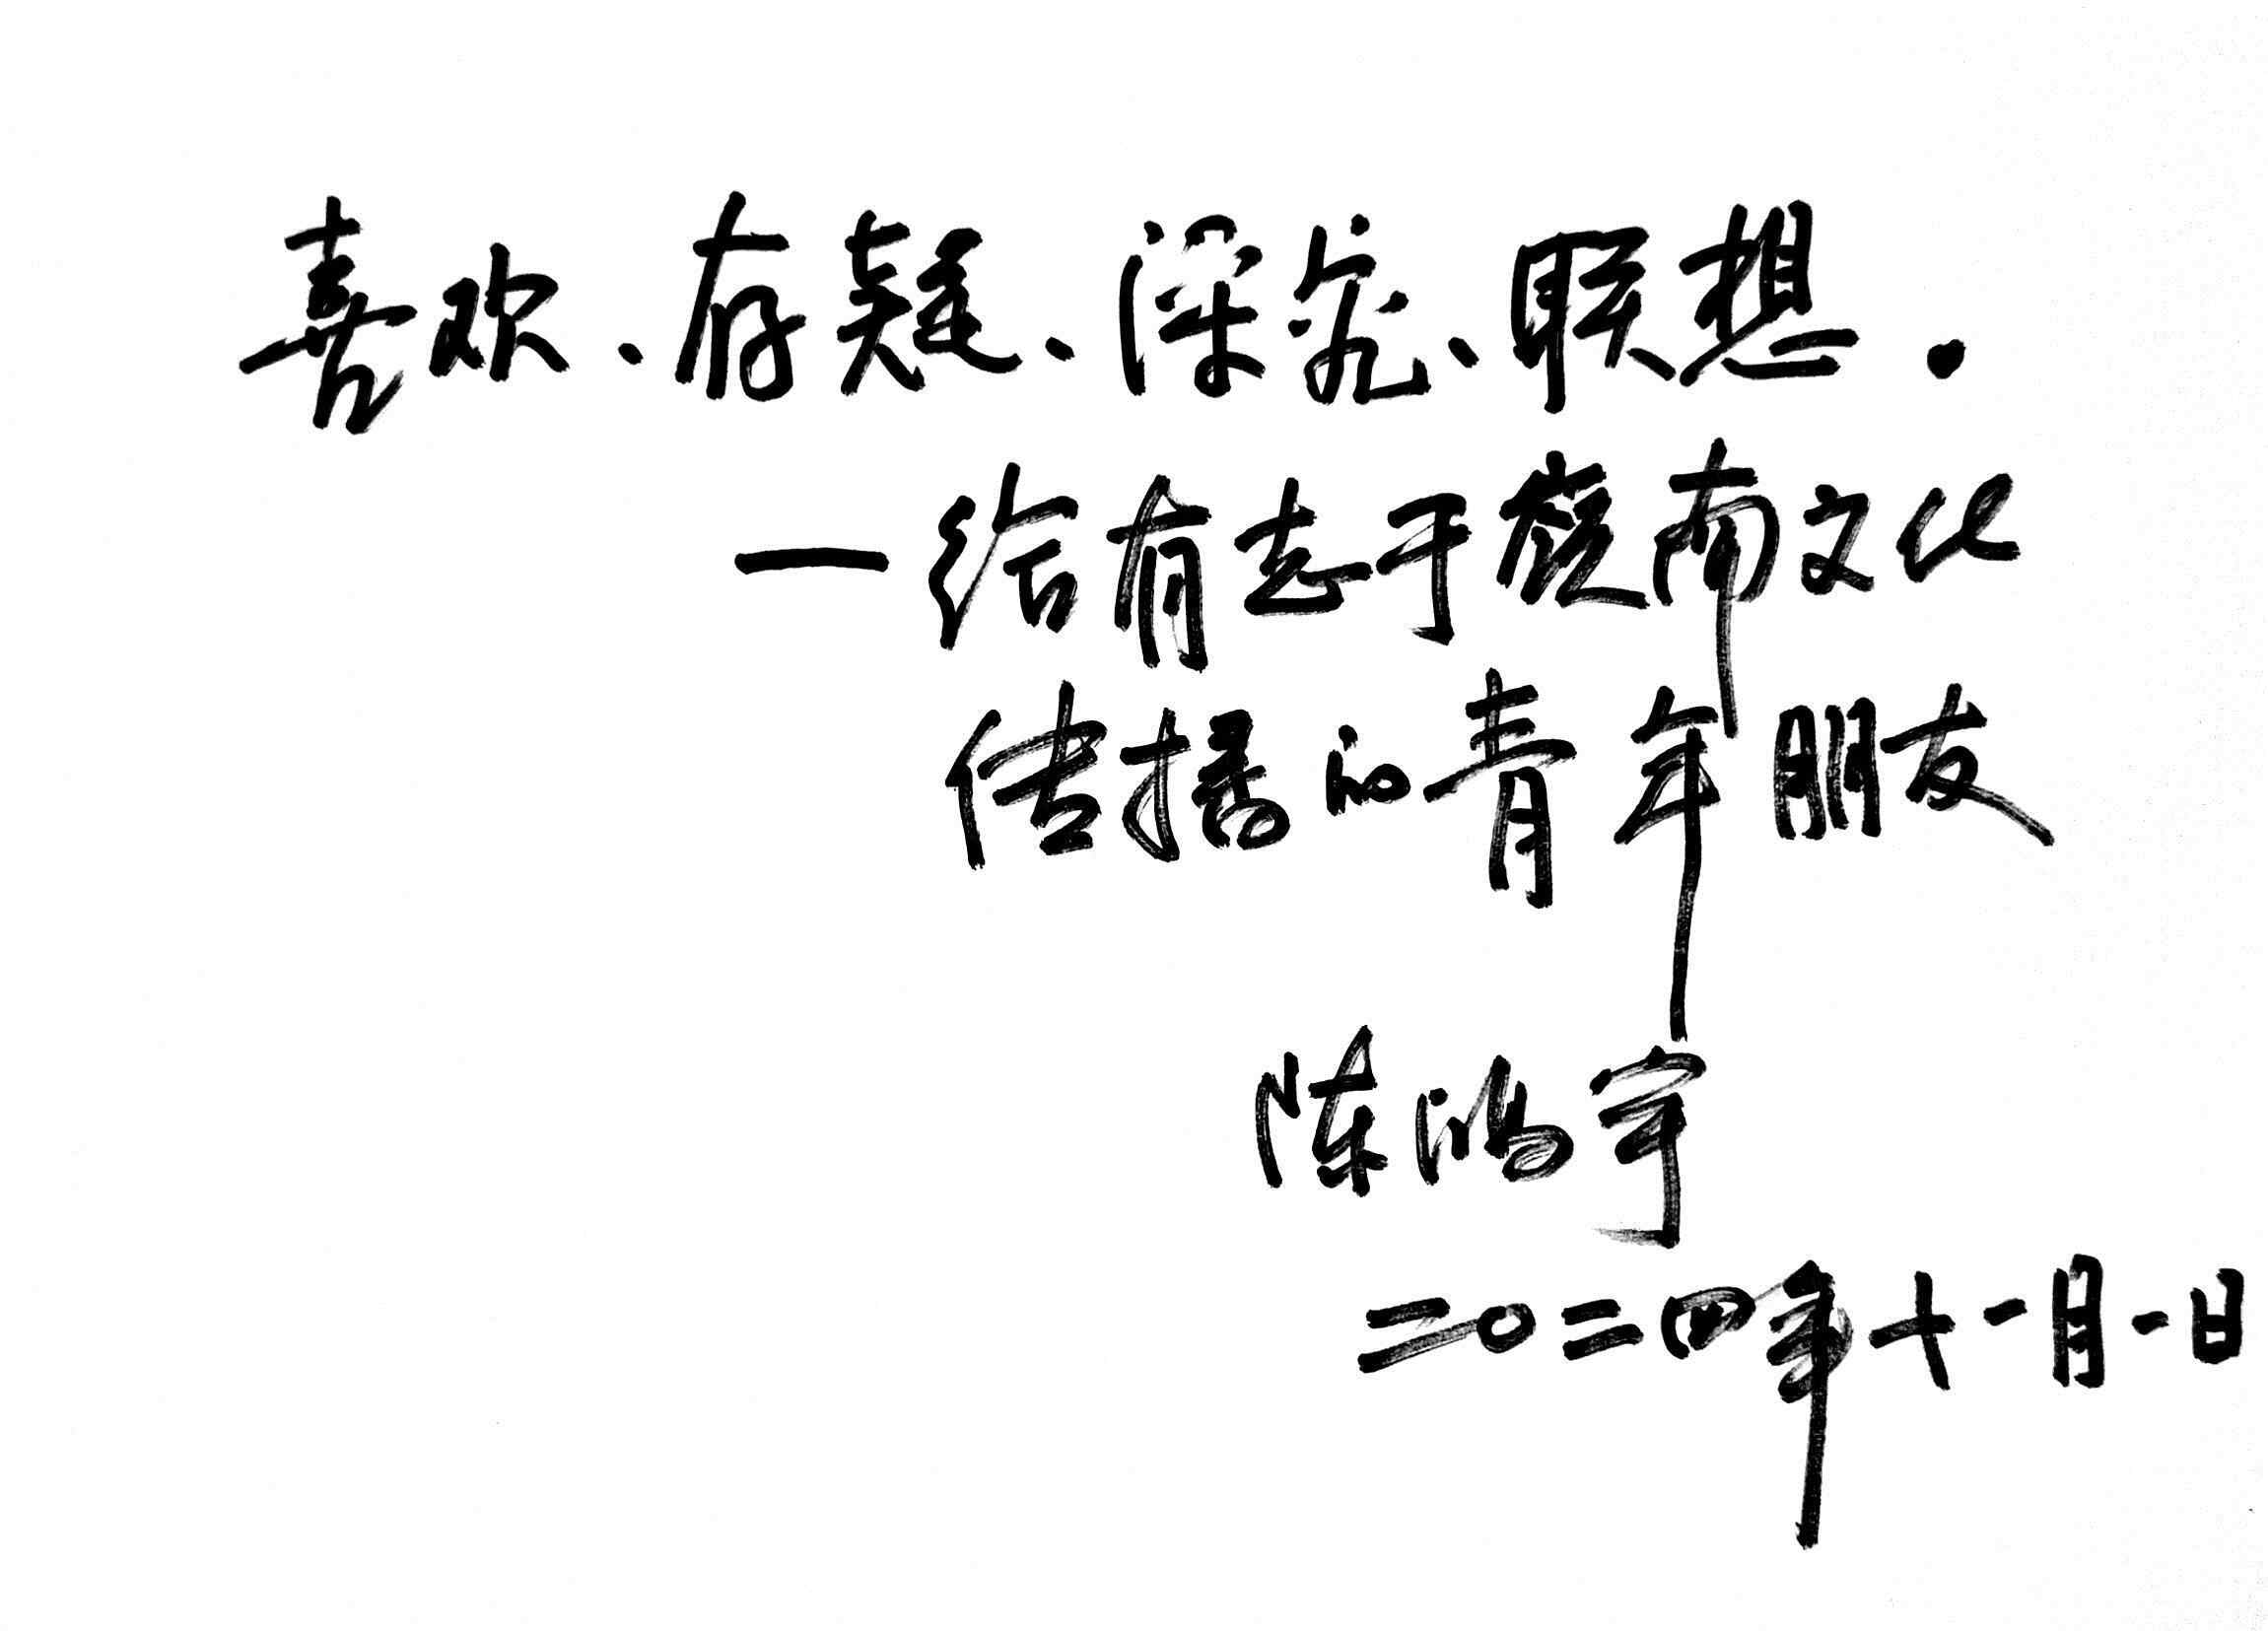 喜欢、存疑、深究、联想.
—给有志于嶺南文化
传播的青年朋友
陈鸿宇
二〇二四年十一月一日